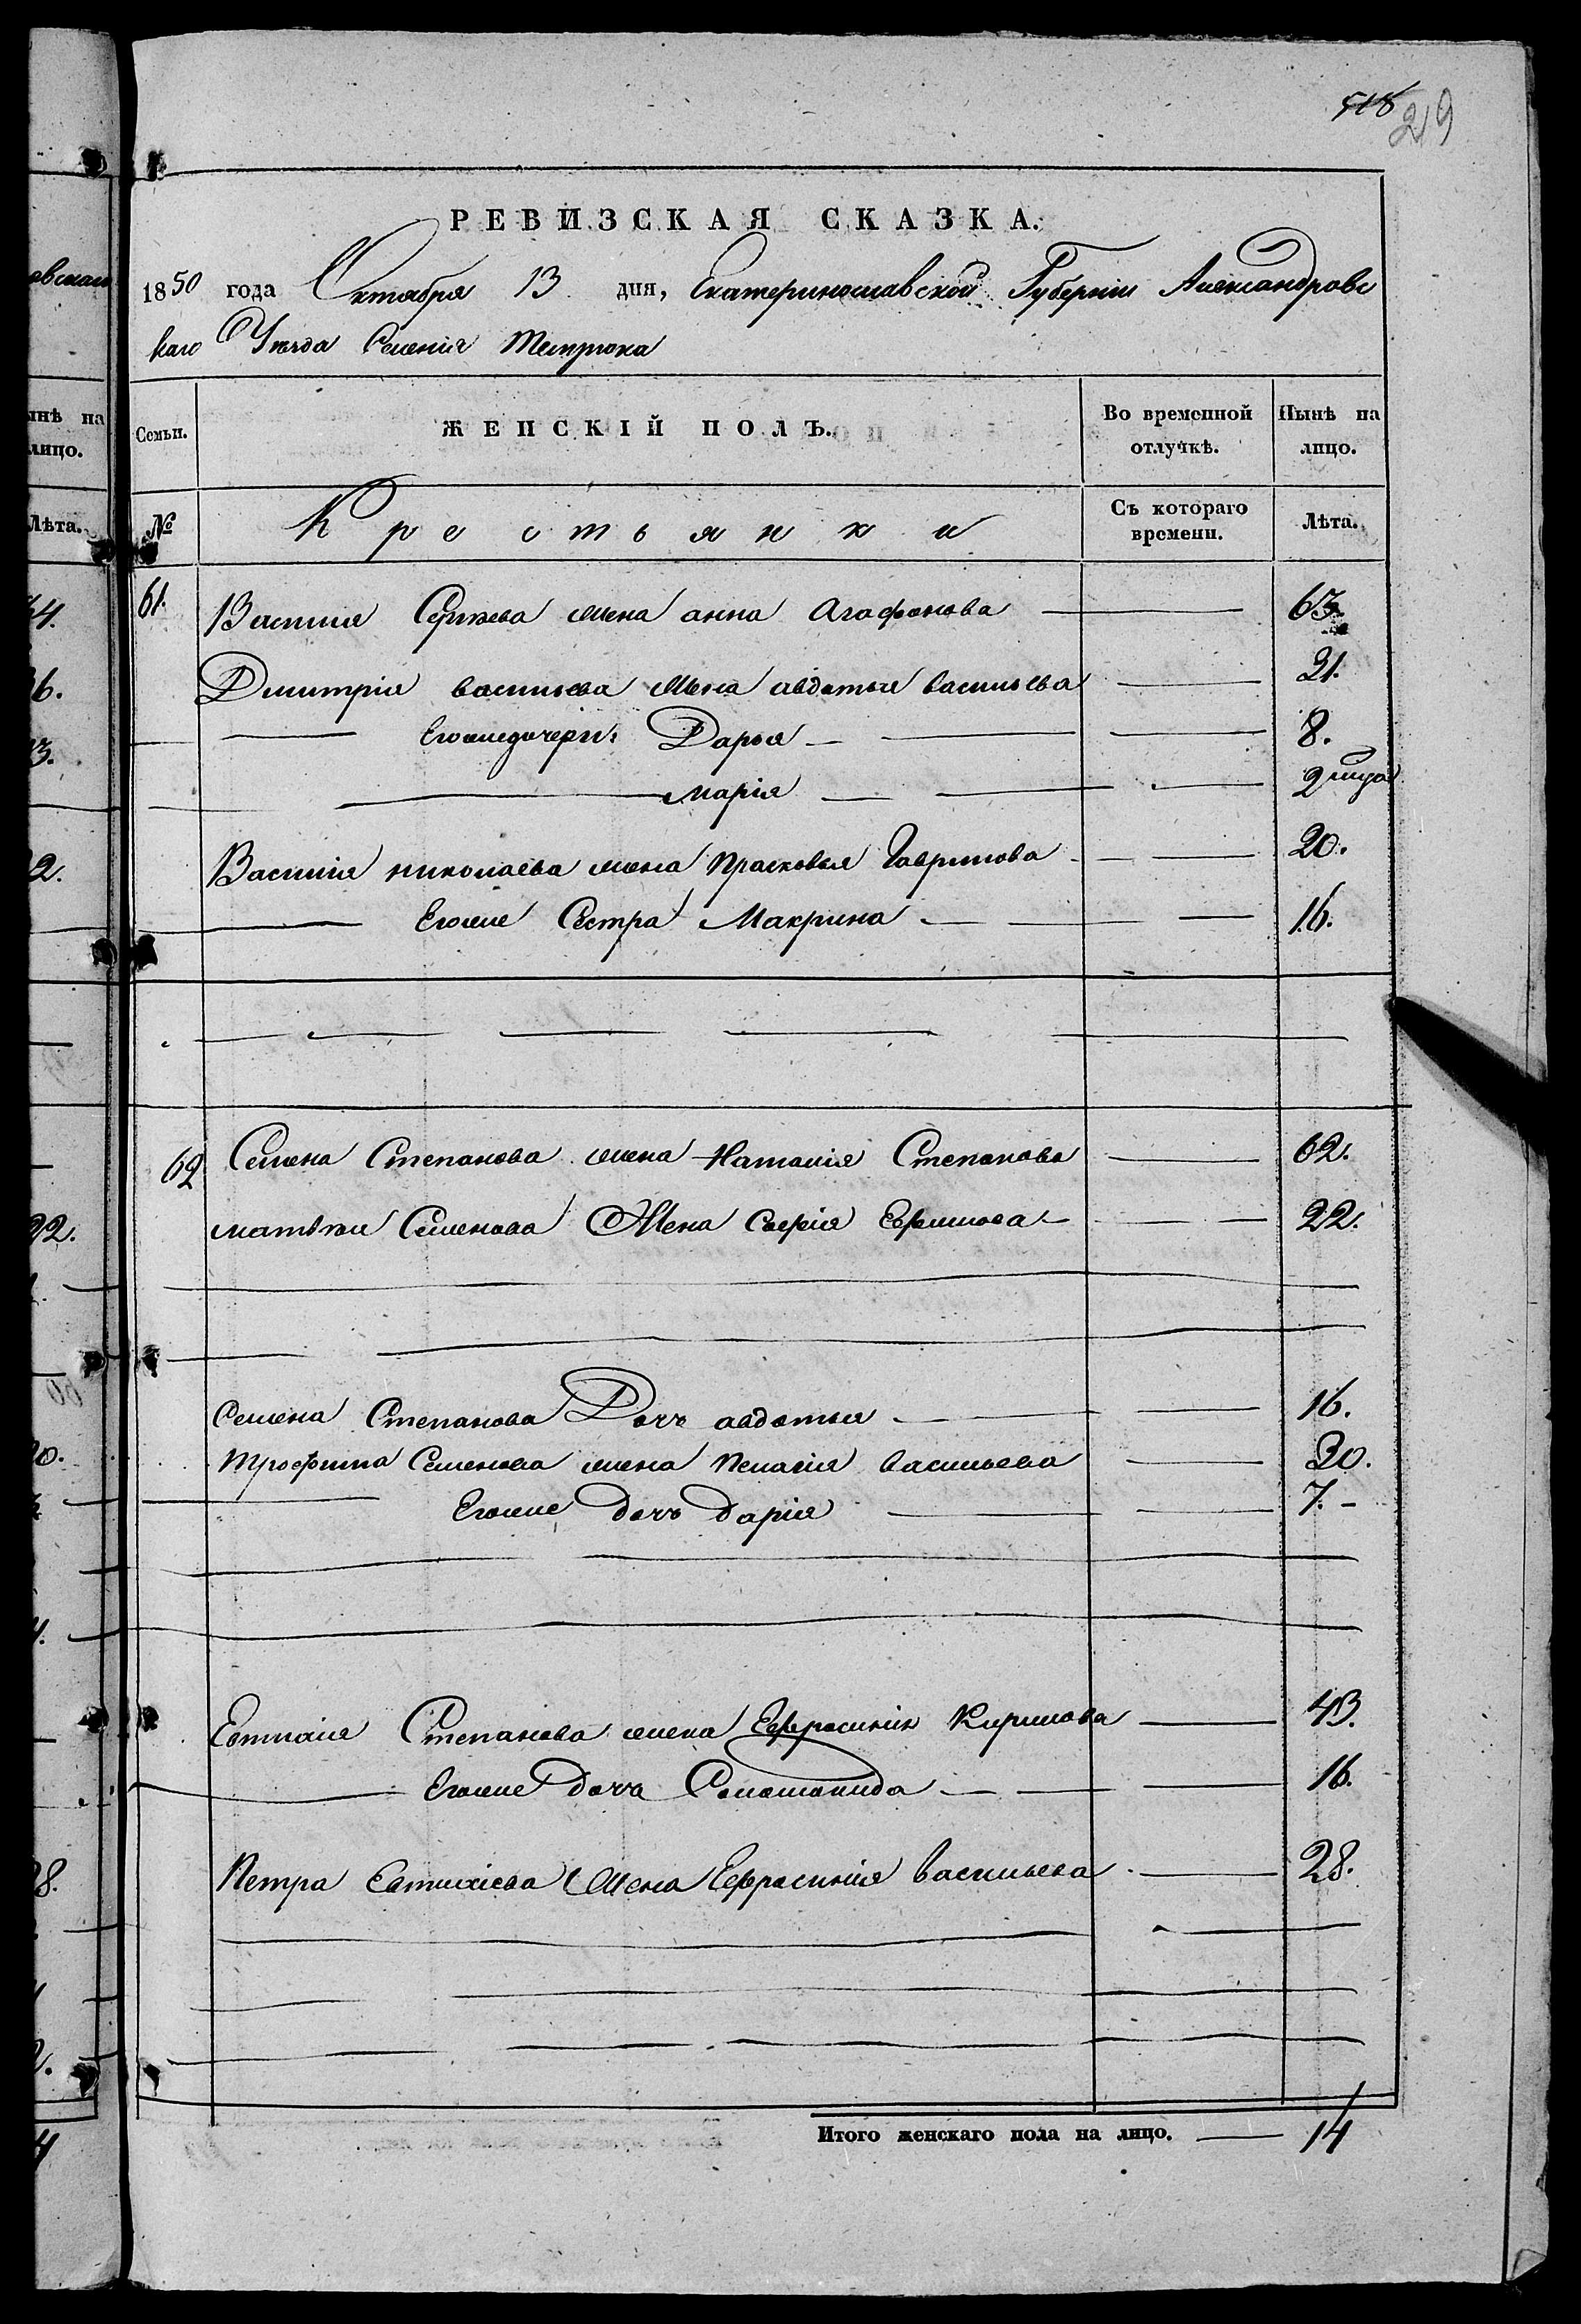 518
219
РЕВИЗСКАЯ СКАЗКА.
1850 года Октября 13 дня, Екатеринославской Губерніи Александровс
каго Уѣзда Селенія Темрюка
Семьи. ЖЕНСКІЙ ПОЛЪ. Во временной отлучкѣ. Нынѣ на лицо.
№ Крестьянки Съ котораго времени. Лѣта.
61. Василія Сергѣева жена анна Агафонова 63.
Дмитрія васильева жена авдотья васильева 31.
Егожедочери: Дарья 8.
Марія 2 мѣся
Василія николаева жена Прасковья Гаврилова 20.
Егоже Сестра Макрина 16.
62 Семена Степанова жена Наталія Степанова 62.
матвѣя Семенова Жена Софія Ефимова 22.
Семена Степанова Дочь авдотья 16.
трофима Семенова жена Пелагія васильева 30.
Егоже дочь дарія 7.
Евтихія Степанова жена Ефросинія Кирилова 43.
Егоже дочь Соломонида 16.
Петра Евтихіева Жена Ефросинія васильева 28.
Итого женскаго пола на лицо. 14
овскаго
нынѣ на
лицо.
Лѣта.